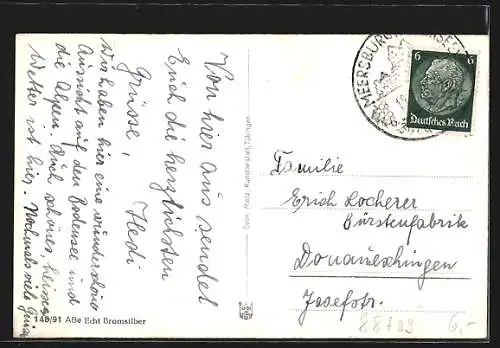 Von hier aus sendet
Euch die herzlichsten
Grüsse,
Hedi
Wir haben hier eine wunderschöne
Aussicht auf den Bodensee und
die Alpen. Auch schönes, heisses
Wetter ist hier. Nochmals viele Grüsse
148/91 ABe Echt Bromsilber
Gebr. Metz Kunstanstalt, Tübingen
MEERSBURG
6 6
Deutsches Reich
Familie
Erich Locherer
Bürstenfabrik
Donaueschingen
Josefstr.
6,-